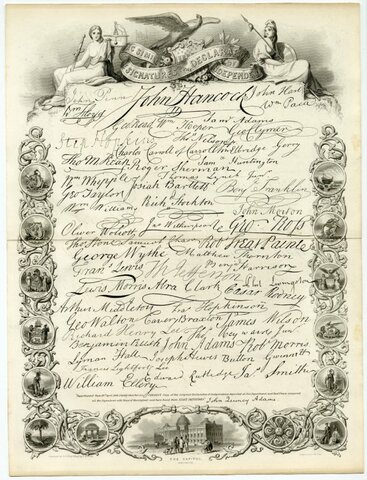 SIGNATURES DECLARATION OF INDEPENDENCE
John Penn John Hancock John Hart
Wm Floyd Wm Paca
Geo Read Wm Hooper Saml Adams
Step Hopkins Geo Clymer
Thos Nelson jr
Charles Carroll of Carrollton Elbridge Gerry
Tho M:Kean Roger Sherman Saml Huntington
Wm Whipple Thomas Lynch Junr
Geo Taylor Josiah Bartlett Benj Franklin
Wm Williams Richd Stockton
John Morton
Oliver Wolcott Jno Witherspoon Geo Ross
Thos Stone Samuel Chase Robt Treat Paine
George Wythe Matthew Thornton
Frans Lewis Th Jefferson Benj Harrison
Lewis Morris Abra Clark Phil Livingston
Caesar Rodney
Arthur Middleton Fras Hopkinson
Geo Walton Carter Braxton James Wilson
Richard Henry Lee Thos Heyward Junr
Benjamin Rush John Adams Robt Morris
Lyman Hall Joseph Hewes Button Gwinnett
Francis Lightfoot Lee
William Ellery Edward Rutledge Jas Smith
John Quincy Adams
THE CAPITOL